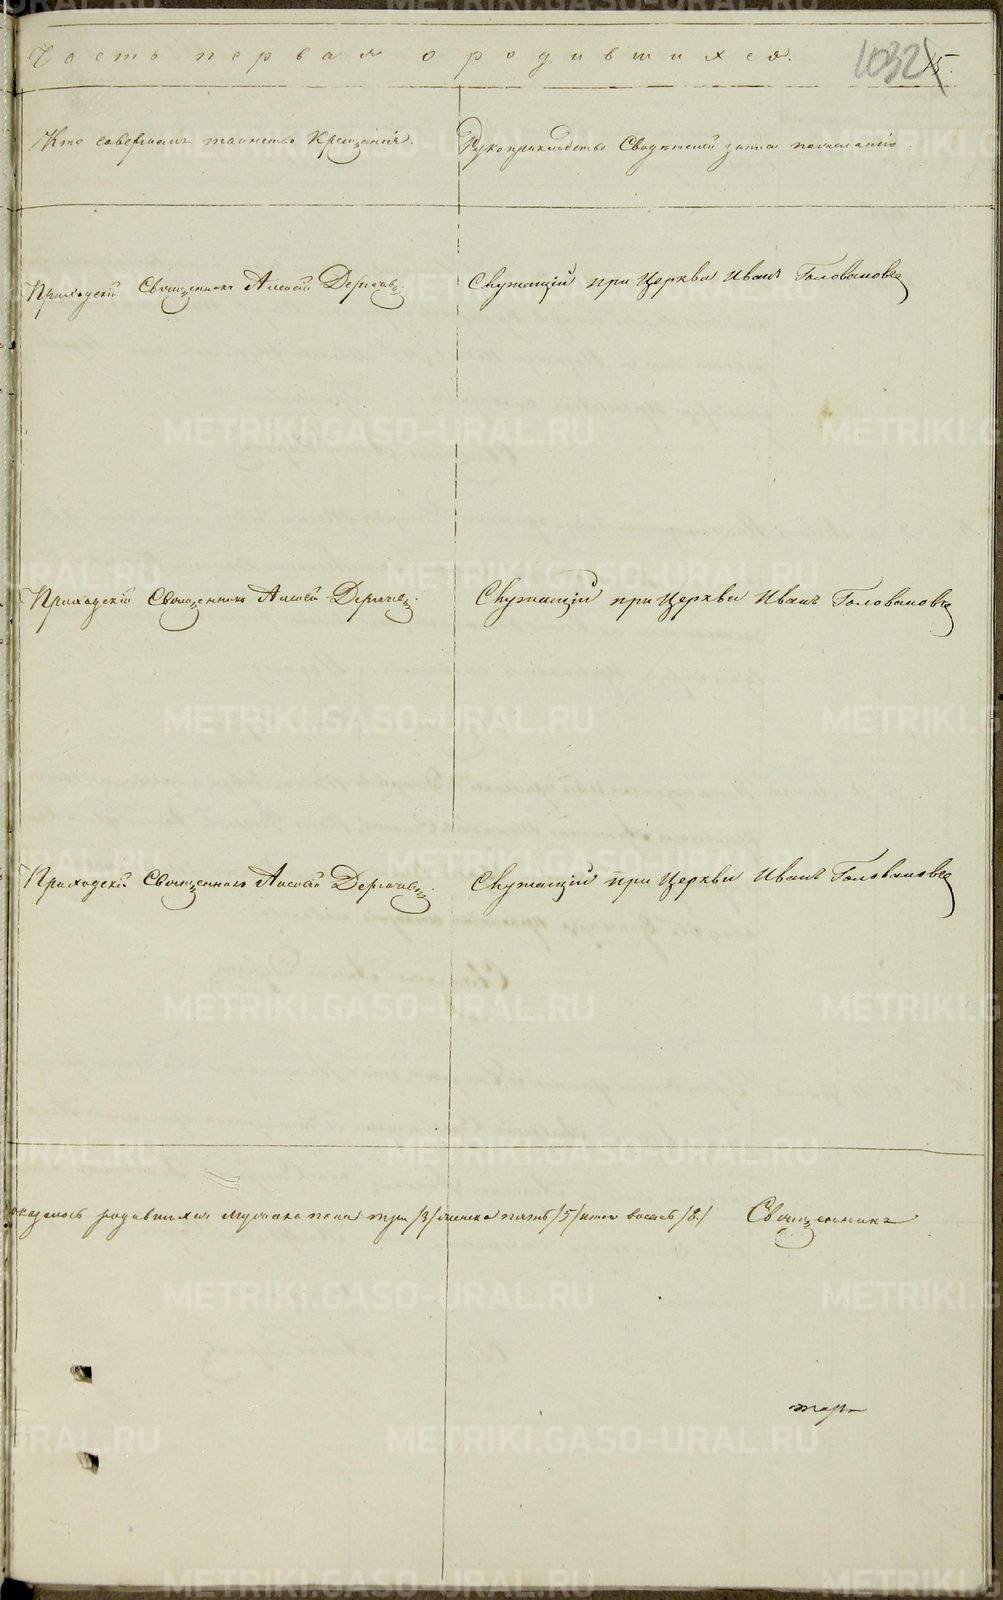 Часть первая о родившихся.
1032
5.
Кто совершалъ таинство Крещенія.
Рукоприкладство Свидѣтелей записи по желанію.
Приходскій Священникъ Алексѣй
Служащій при Церкви Иванъ Головановъ
Приходскій Священникъ Алексѣй
Служащій при Церкви Иванъ Головановъ
Приходскій Священникъ Алексѣй
Служащій при Церкви Иванъ Головановъ
оказалось родившихся мужеска пола три /3/ женска пять /5/ итого восемь /8/ Священникъ
METRIKI.GASO-URAL.RU